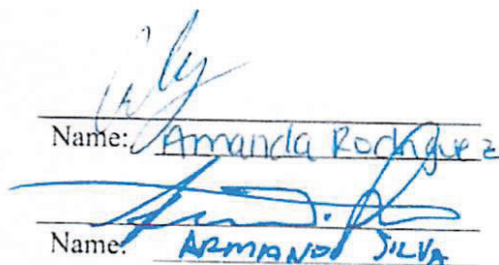 Name: Amanda Rodriguez
Name: ARMANDO SILVA